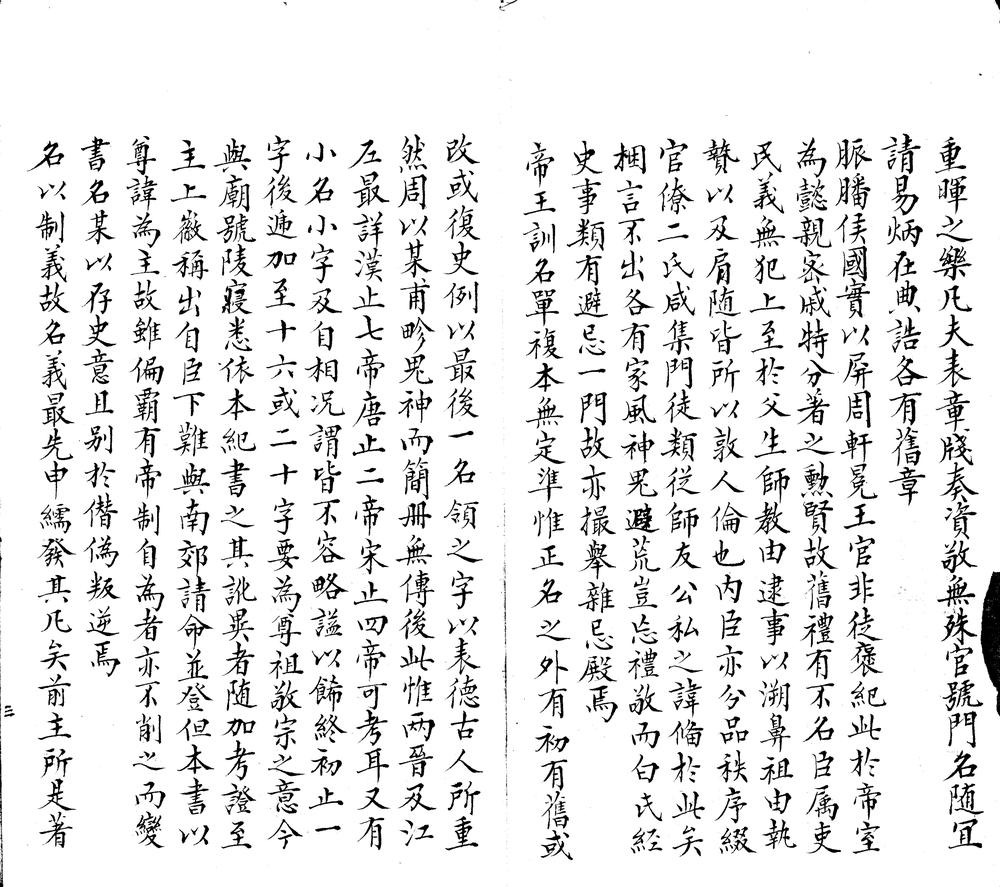 重暉之樂凡夫表章牋奏資敬無殊官號門名随冝
請易炳在典誥各有舊章
脈膰侯國實以屏周軒冕王官非徒褒紀此於帝室
為懿親宻戚特分著之勲賢故舊禮有不名臣属吏
民義無犯上至於父生師教由逮事以溯鼻祖由執
贄以及肩随皆所以敦人倫也内臣亦分品秩序綴
官僚二氏咸集門徒類従師友公私之諱偹於此矣
梱言不出各有家風神鬼避荒豈忘禮敬而白氏經
史事類有避忌一門故亦撮舉雜忌殿焉
帝王訓名單複本無定準惟正名之外有初有舊或
改或復史例以最後一名領之字以表德古人所重
然周以某甫畛鬼神而簡册無傳後此惟兩晉及江
左最詳漢止七帝唐止二帝宋止四帝可考耳又有
小名小字及自相况謂皆不容略謚以飾終初止一
字後遞加至十六或二十字要為尊祖敬宗之意今
與廟號陵寢悉依本紀書之其訛異者随加考證至
主上徽稱出自臣下難與南郊請命並登但本書以
尊諱為主故雖偏霸有帝制自為者亦不削之而變
書名某以存史意且别於僭偽叛逆焉
名以制義故名義最先申繻發其凡矣前主所是著
三